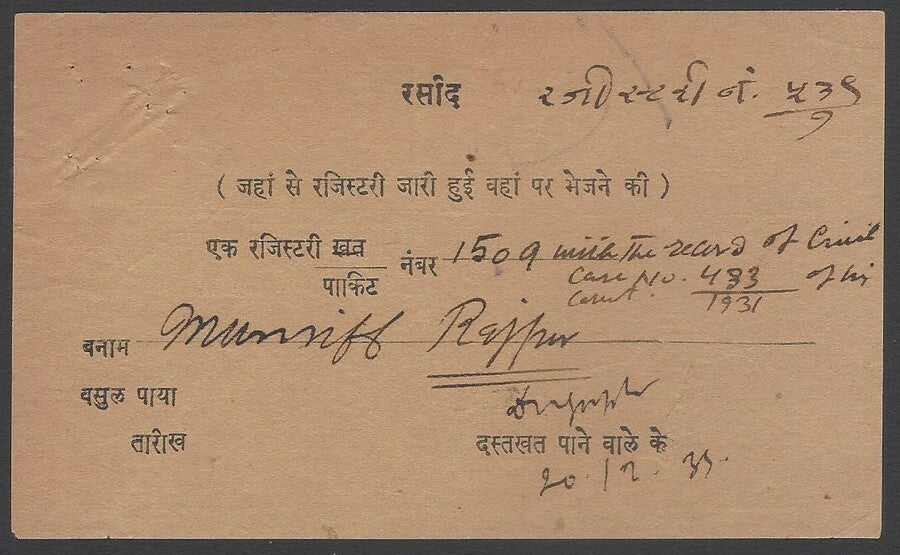 रसीद रजीस्टरी नं. ५३९
७
( जहां से रजिस्टरी जारी हुई वहां पर भेजने की )
एक रजिस्टरी खत नंबर 1509 with the record of Civil
पाकिट Case No. 433 of his
Court. 1931
बनाम Munsiff Rajpur
वसुल पाया
तारीख दस्तखत पाने वाले के